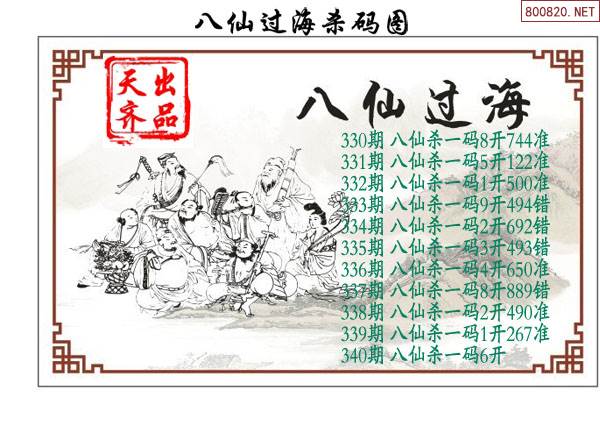 800820.NET
八仙过海杀码图
天齐出品
八仙过海
330期 八仙杀一码8开744准
331期 八仙杀一码5开122准
332期 八仙杀一码1开500准
333期 八仙杀一码9开494错
334期 八仙杀一码2开692错
335期 八仙杀一码3开493错
336期 八仙杀一码4开650准
337期 八仙杀一码8开889错
338期 八仙杀一码2开490准
339期 八仙杀一码1开267准
340期 八仙杀一码6开